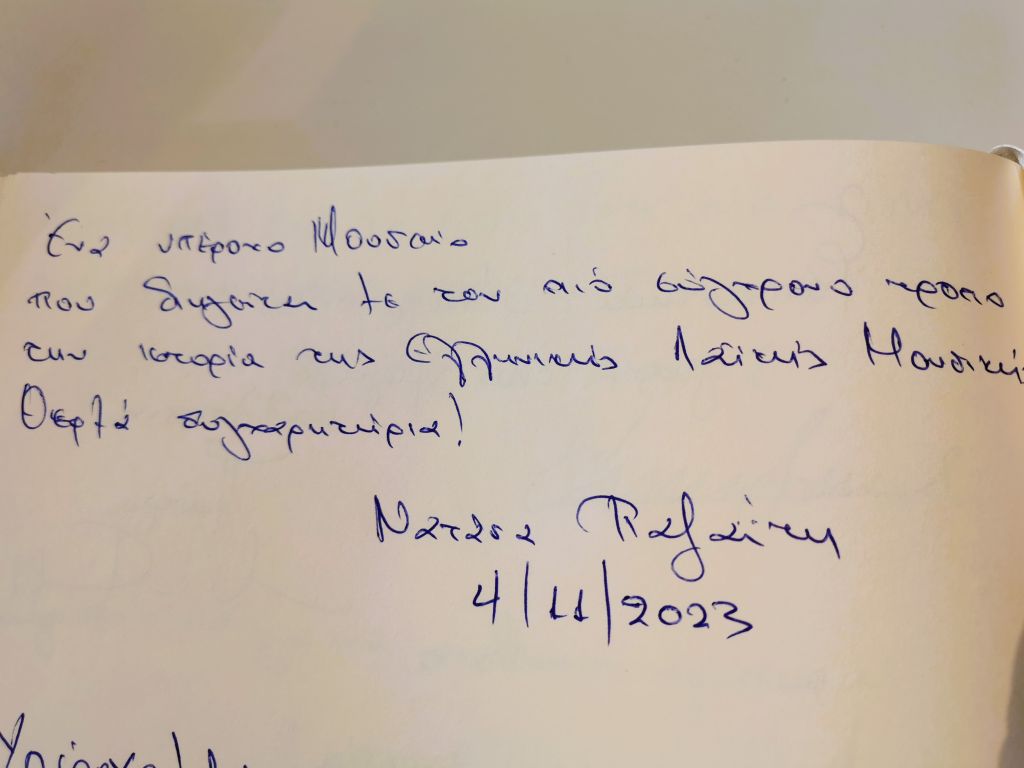 Ένα υπέροχο Μουσείο
που διηγείται με τον πιό σύγχρονο τροπο
την ιστορία της Ελληνικής Λαϊκής Μουσικής
Θερμά συγχαρητήρια!
Νατάσα Παζαΐτη
4/11/2023